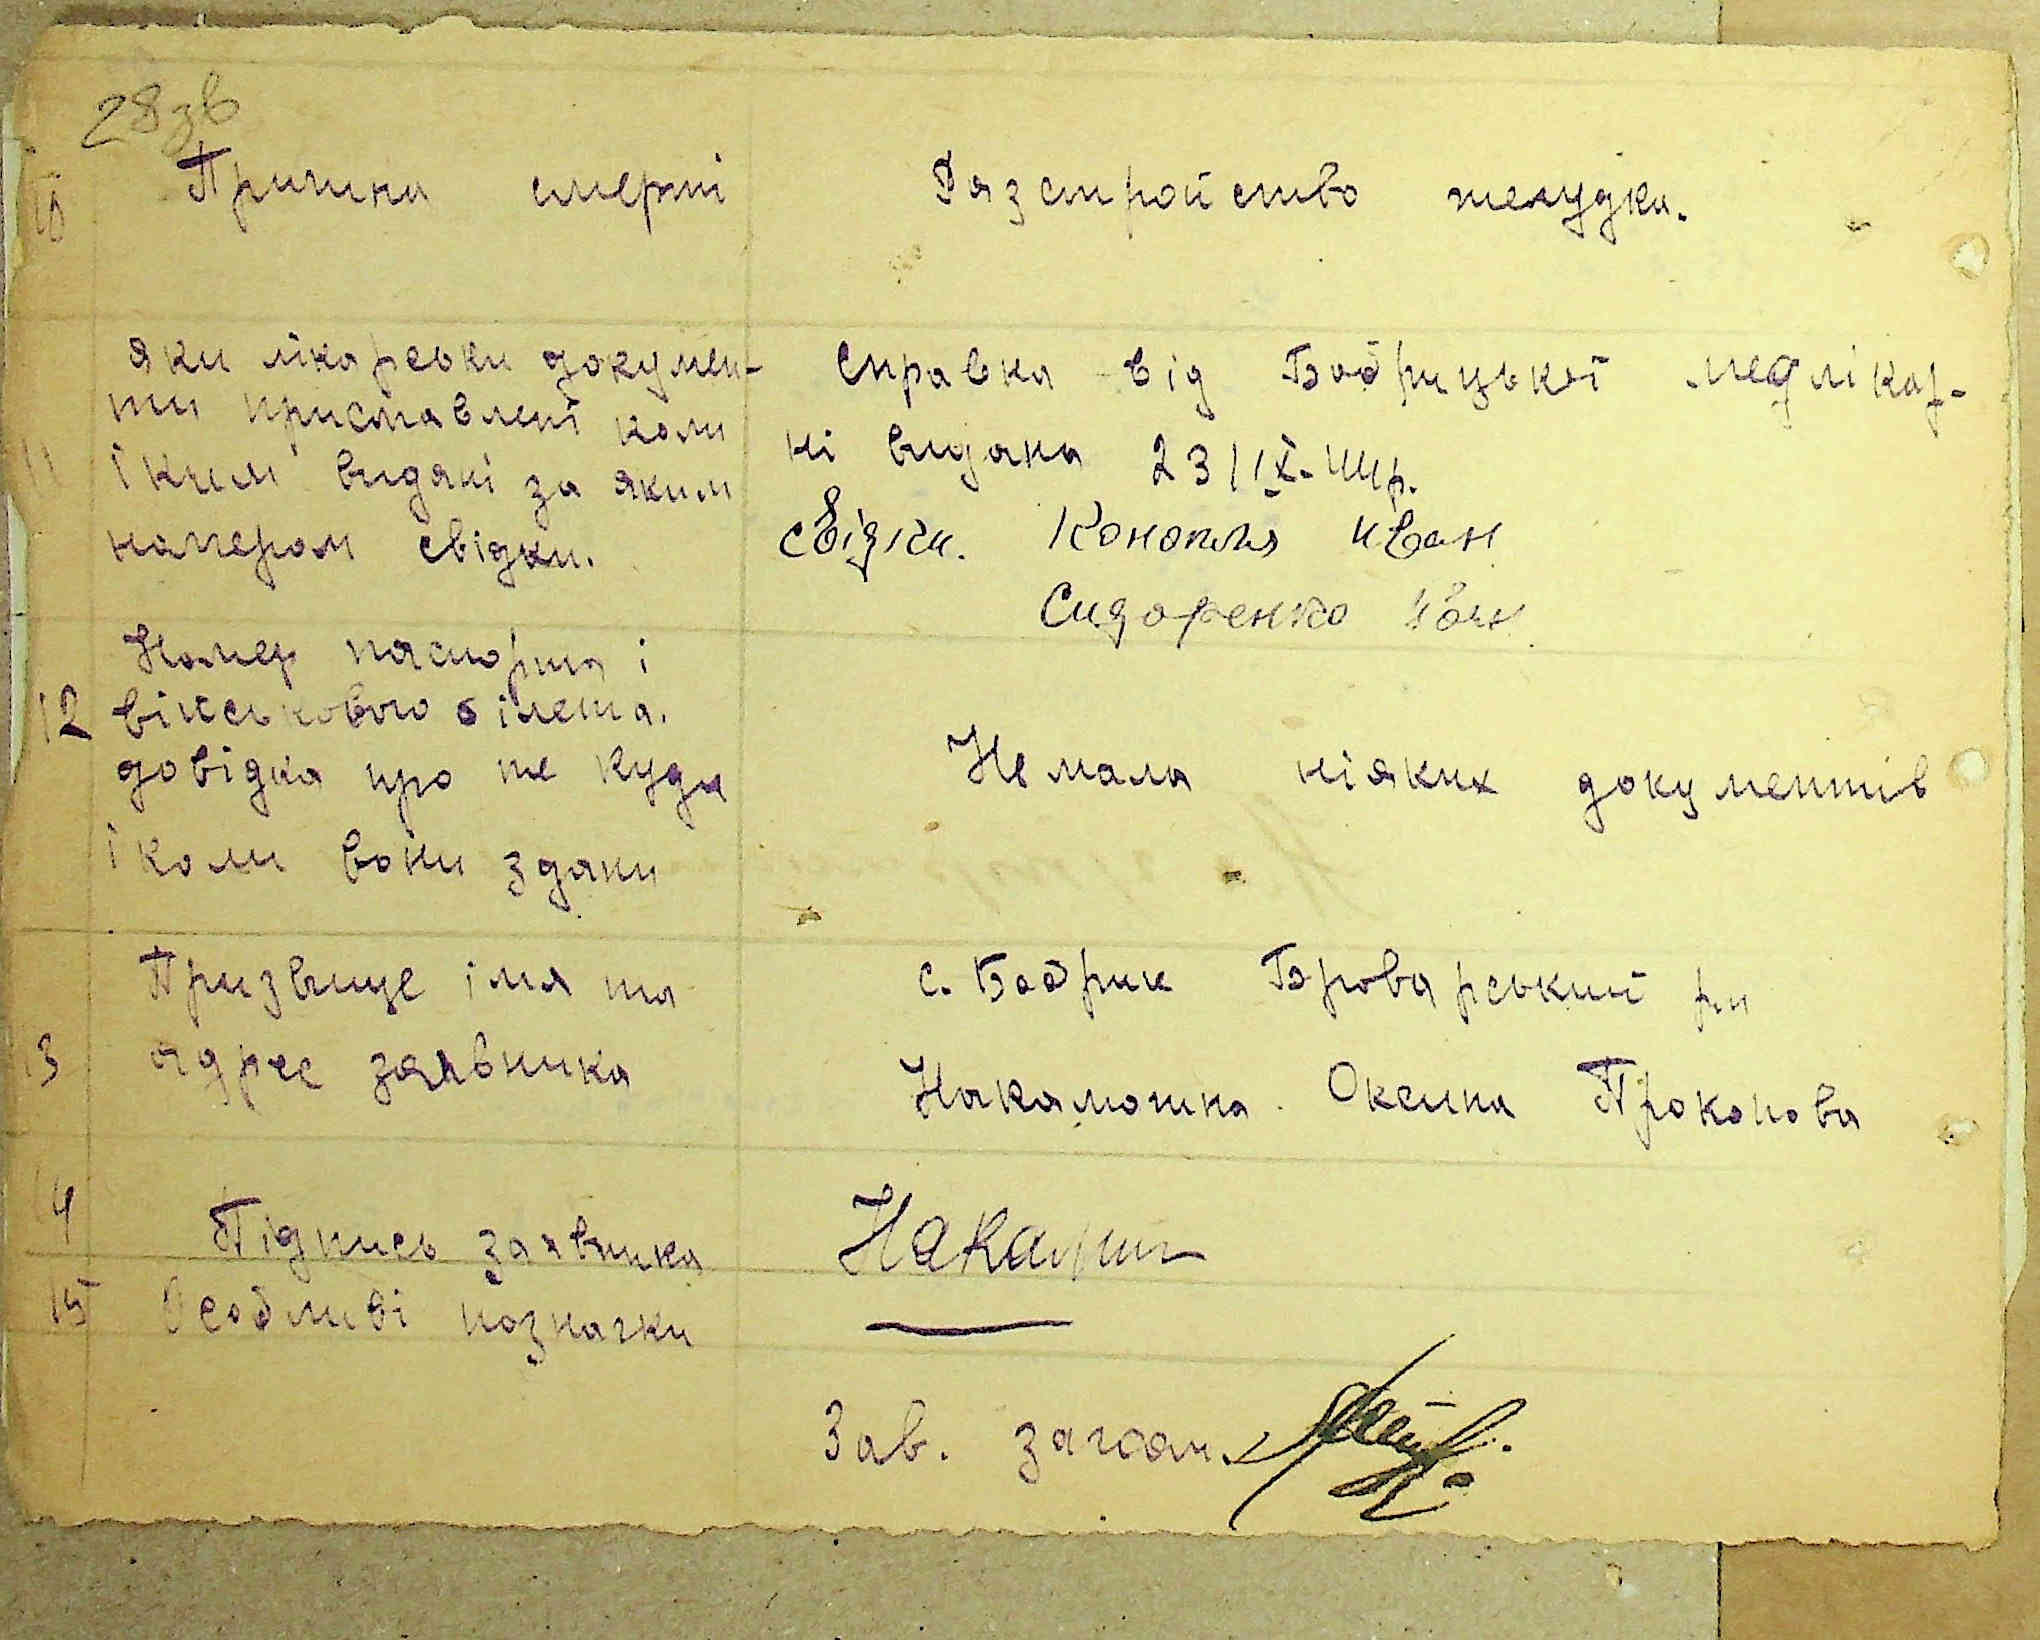 28зв
10 Причина смерті
Разстройство желудка.
Яки лікарськи докумен-
ти приставлені коли
11 і ким видані за яким
номером свідки.
Справка від Бобрицької медлікар-
ні видана 23/IX. ц/ц р.
свідки. Конопля Иван
Сидоренко
Номер паспорта і
12 військового білета.
довідка про те куда
і коли вони здани
Не мала ніяких документів
Призвище імя та
13 адрес заявника
с. Бобрик Броварський рн
Накалюжна Оксина Прокопова
14 Підпись заявника
15 Особливі позначки
Зав. загсом